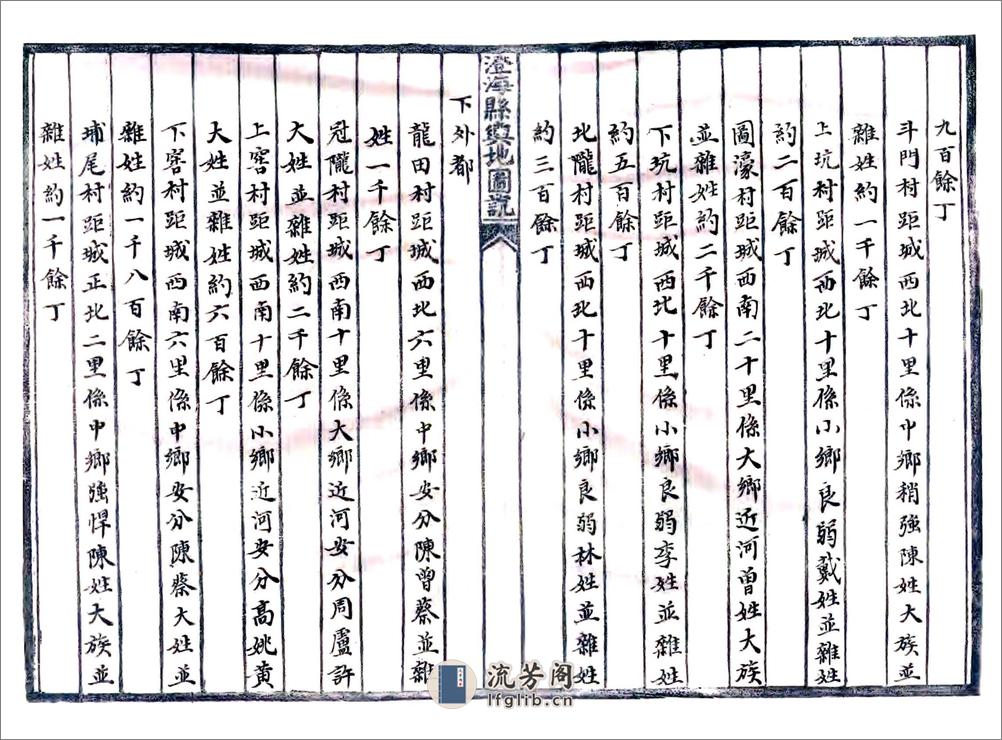 九百餘丁
斗門村距城西北十里係中鄉稍強陳姓大族並
雜姓約一千餘丁
上坑村距城西北十里係小鄉良弱戴姓並雜姓
約二百餘丁
圖濠村距城西南二十里係大鄉近河曾姓大族
並雜姓約二千餘丁
下坑村距城西北十里係小鄉良弱李姓並雜姓
約五百餘丁
北隴村距城西北十里係小鄉良弱林姓並雜姓
約三百餘丁
澄海縣輿地圖說
下外都
龍田村距城西北六里係中鄉安分陳曾蔡並雜
姓一千餘丁
冠隴村距城西南十里係大鄉近河安分周盧許
大姓並雜姓約二千餘丁
上窖村距城西南十里係小鄉近河安分高姚黃
大姓並雜姓約六百餘丁
下窖村距城西南六里係中鄉安分陳蔡大姓並
雜姓約一千八百餘丁
埔尾村距城正北二里係中鄉強悍陳姓大族並
雜姓約一千餘丁
流芳阁
lfglib.cn